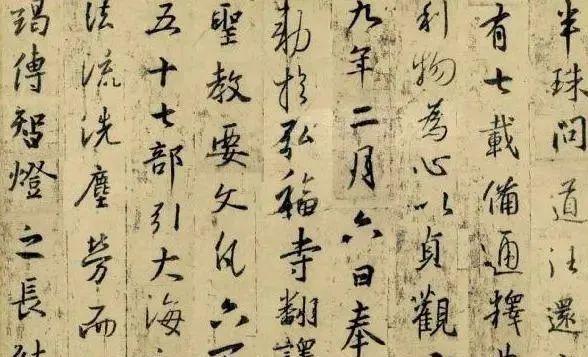 半珠問道往還
有七載備通釋
利物為心以貞觀
九年二月六日奉
勅於弘福寺翻譯
聖教要文凡六百
五十七部引大海
法流洗塵勞而
竭傳智燈之長